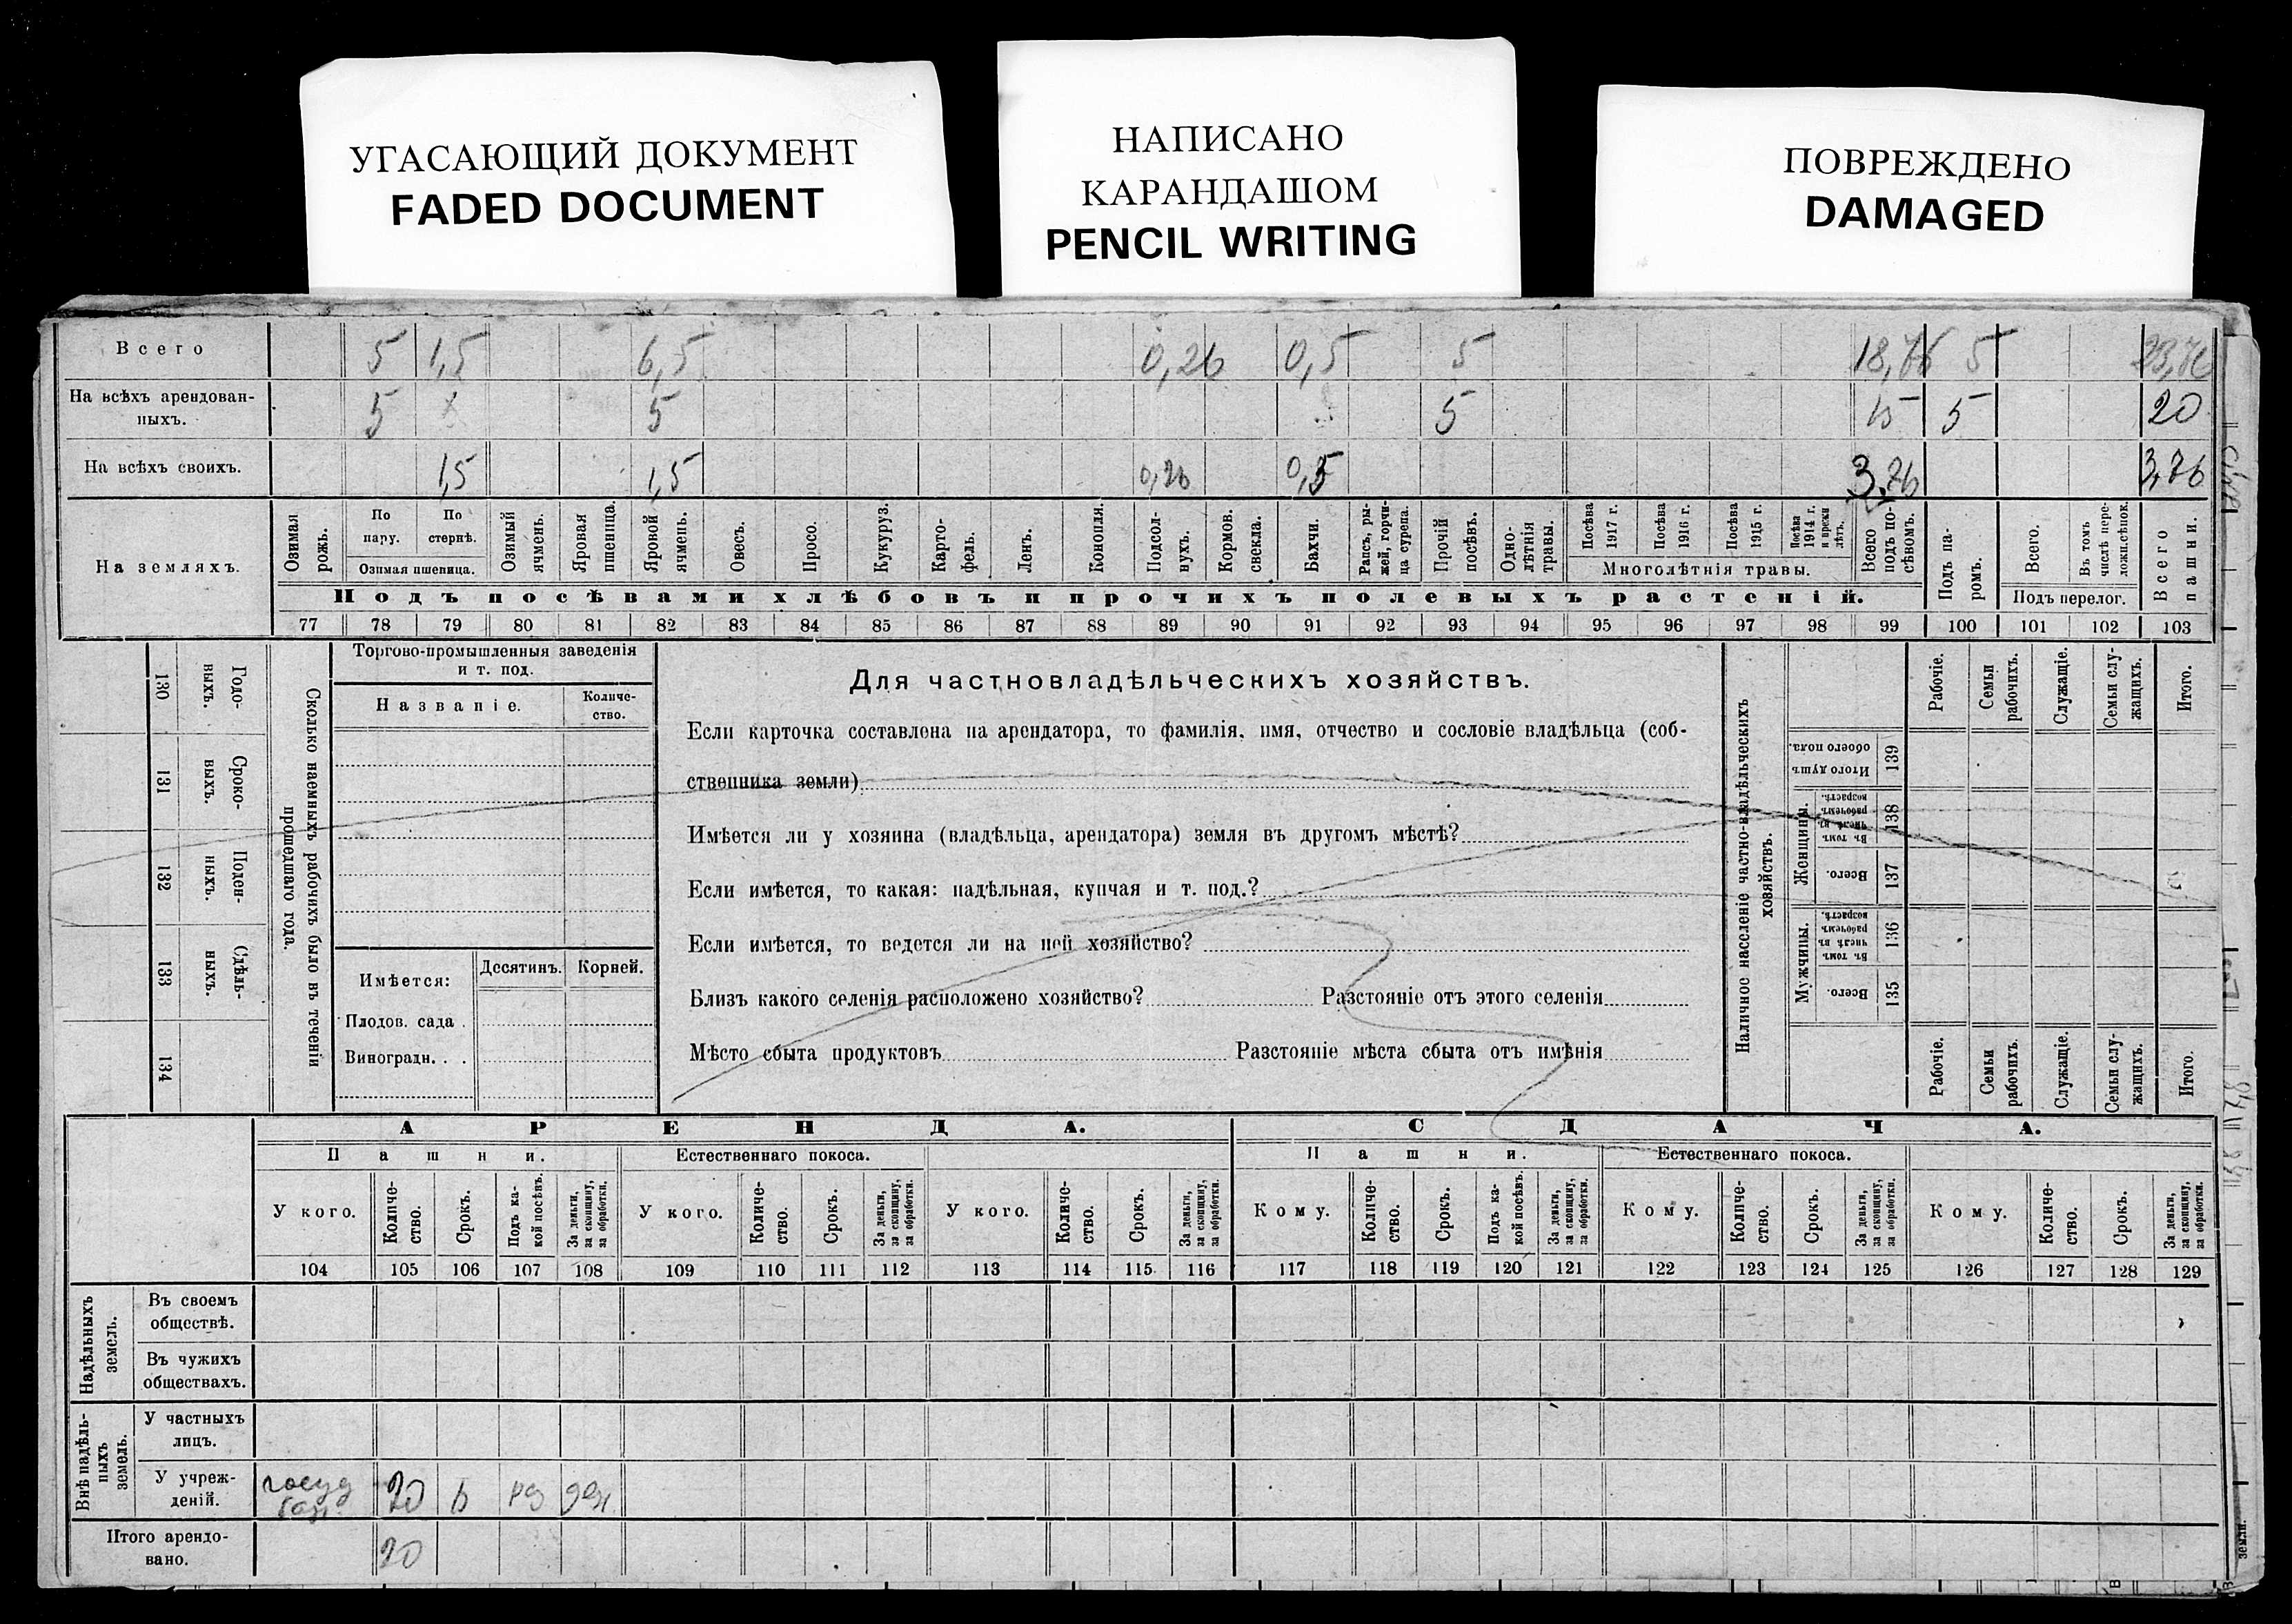 УГАСАЮЩИЙ ДОКУМЕНТ
FADED DOCUMENT
НАПИСАНО
КАРАНДАШОМ
PENCIL WRITING
ПОВРЕЖДЕНО
DAMAGED
Всего 5 1,5 6,5 0,26 0,5 5 18,76 5 23,76
На всѣхъ арендован-
ныхъ. 5 5 5 15 5 20
На всѣхъ своихъ. 1,5 1,5 0,26 0,5 3,76 3,76
На земляхъ.
Озимая рожь.
По пару.
По стернѣ.
Озимая пшеница.
Озимый ячмень.
Яровая пшеница.
Яровой ячмень.
Овесъ.
Просо.
Кукуруз.
Карто-
фель.
Ленъ.
Конопля.
Подсол-
нухъ.
Кормов. свекла.
Бахчи.
Рапсъ, ры-
жей, горчи-
ца сурепа.
Прочій посѣвъ.
Одно-
лѣтнія травы.
Посѣва 1917 г.
Посѣва 1916 г.
Посѣва 1915 г.
Посѣва 1914 г. и прежн лѣтъ.
Многолѣтнія травы.
Всего подъ по-
сѣвомъ.
Подъ посѣвами хлѣбовъ и прочихъ полевыхъ растеній.
Подъ па-
ромъ.
Всего.
Въ томъ числѣ пере-
ложн.сѣнок.
Подъ перелог.
Всего пашни.
77 78 79 80 81 82 83 84 85 86 87 88 89 90 91 92 93 94 95 96 97 98 99 100 101 102 103
130 Годо-
ныхъ.
131 Сроко-
выхъ.
132 Поден-
ныхъ.
133 Сдѣль-
ныхъ.
134
Сколько наемныхъ рабочихъ было въ теченіи
прошедшаго года.
Торгово-промышленныя заведенія
и т. под.
Названіе.
Количе-
ство.
Имѣется: Десятинъ. Корней.
Плодов. сада .
Виноградн. . .
Для частновладѣльческихъ хозяйствъ.
Если карточка составлена на арендатора, то фамилія, имя, отчество и сословіе владѣльца (соб-
ственника земли)
Имѣется ли у хозяина (владѣльца, арендатора) земля въ другомъ мѣстѣ?
Если имѣется, то какая: надѣльная, купчая и т. под.?
Если имѣется, то ведется ли на ней хозяйство?
Близъ какого селенія расположено хозяйство? Разстояніе отъ этого селенія
Мѣсто сбыта продуктовъ Разстояніе мѣста сбыта отъ имѣнія
Наличное населеніе частно-владѣльческихъ
хозяйствъ.
Рабочіе.
Семьи рабочихъ.
Служащіе.
Семьи слу-
жащихъ.
Итого.
Итого душъ обоего пола. 139
Женщины.
Въ томъ числѣ въ рабочемъ возрастѣ. 138
Всего. 137
Мужчины.
Въ томъ числѣ въ рабочемъ возрастѣ. 136
Всего. 135
Рабочіе.
Семьи рабочихъ.
Служащіе.
Семьи слу-
жащихъ.
Итого.
АРЕНДА. СДАЧА.
Пашни. Естественнаго покоса. Пашни. Естественнаго покоса.
У кого.
Количе-
ство.
Срокъ.
Подъ ка-
кой посѣвъ.
За деньги,
за скопщину,
за обработки.
У кого.
Количе-
ство.
Срокъ.
За деньги,
за скопщину,
за обработки.
У кого.
Количе-
ство.
Срокъ.
За деньги,
за скопщину,
за обработки.
Кому.
Количе-
ство.
Срокъ.
Подъ ка-
кой посѣвъ.
За деньги,
за скопщину,
за обработки.
Кому.
Количе-
ство.
Срокъ.
За деньги,
за скопщину,
за обработки.
Кому.
Количе-
ство.
Срокъ.
За деньги,
за скопщину,
за обработки.
104 105 106 107 108 109 110 111 112 113 114 115 116 117 118 119 120 121 122 123 124 125 126 127 128 129
Надѣльныхъ
земель.
Въ своемъ
обществѣ.
Въ чужихъ
обществахъ.
Внѣ надѣль-
ныхъ
земель.
У частныхъ
лицъ.
У учреж-
деній. 20
Итого арендо-
вано. 20
земли.